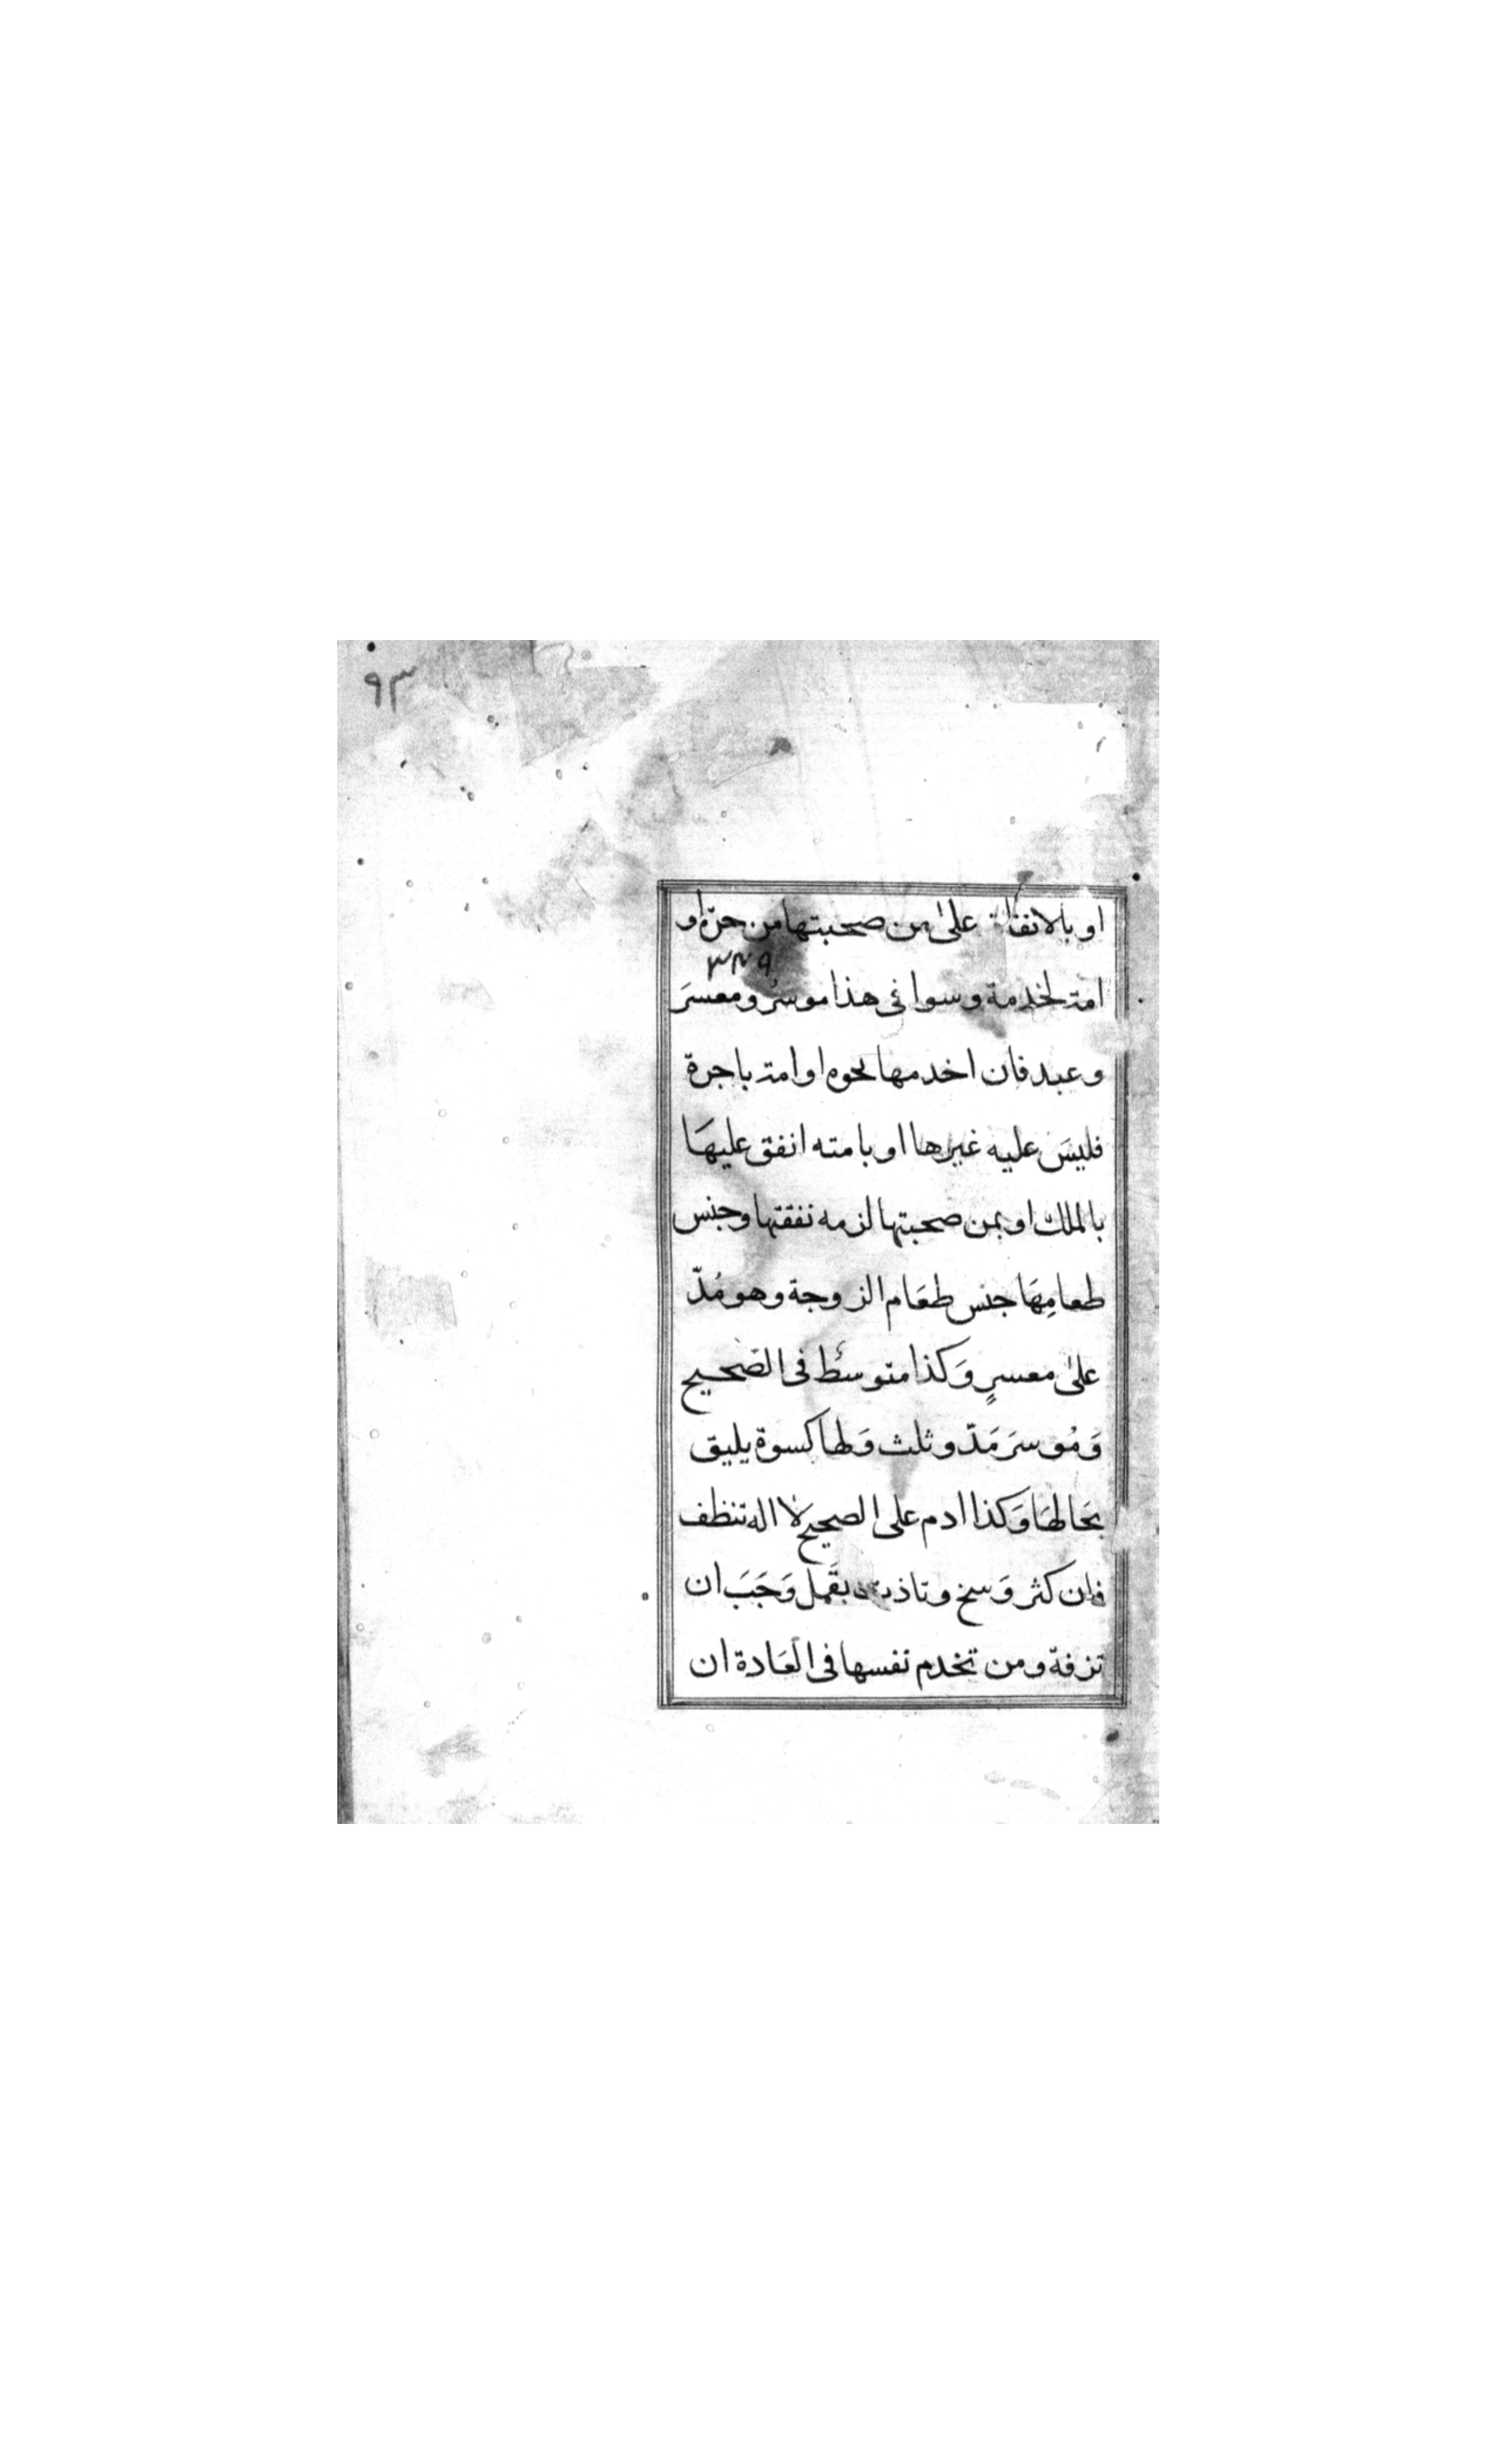 ٩٣
او بالانفاق على من صحبتها من حرّة او
٣٣٩
امة لخدمة وسوا في هذا موسرُ ومعسرَ
وعبد فان اخدمها بحوه او امة باجرة
فليسَ عليه غيرها او بامته انفق عليهَا
بالملك او بمن صحبتها لزمه نفقتها وجنس
طعامِهَا جنس طعَام الزوجة وهو مُدّ
على معسرٍ وَكذا متوسط في الصحيح
وَمُوسرَ مَدّ وثلث وَلها كسوة يليق
بحَالهَا وَكذا ادم على الصحيح لا اله تنظف
فان كثر وَسخ وتاذت بقَمل وَجَبَ ان
تزفه ومن تخدم نفسها في العَادة ان